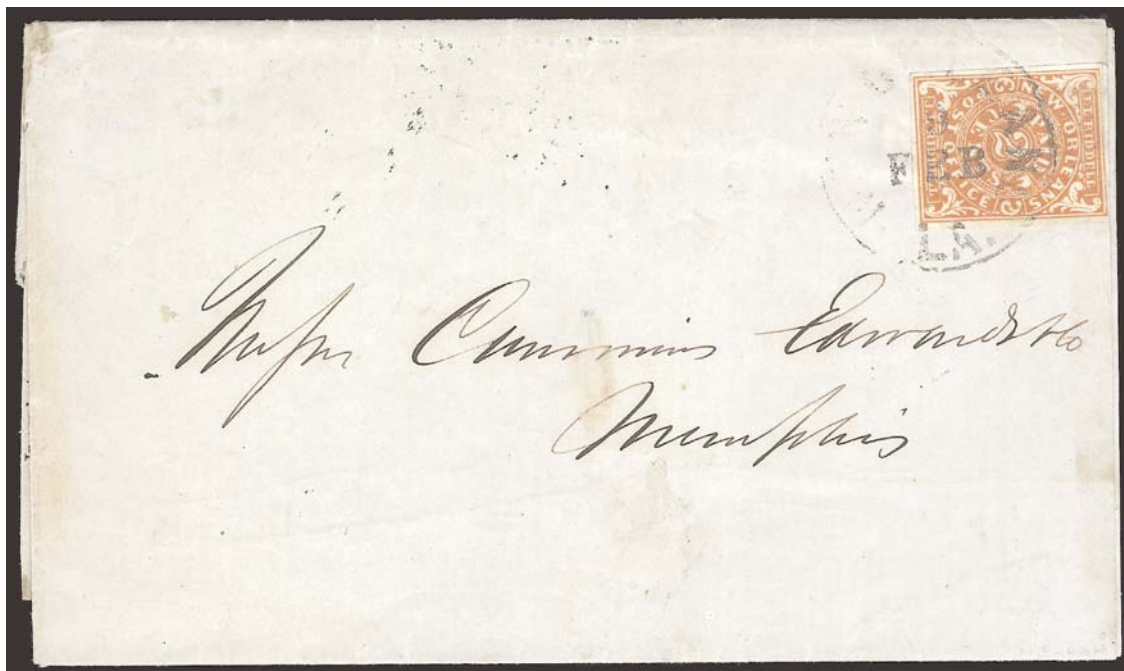 NEW ORLEANS POST OFFICE
J. L. RIDDELL
PAID
5
FEB
LA.
Messrs Cummins Edwards & Co
Memphis